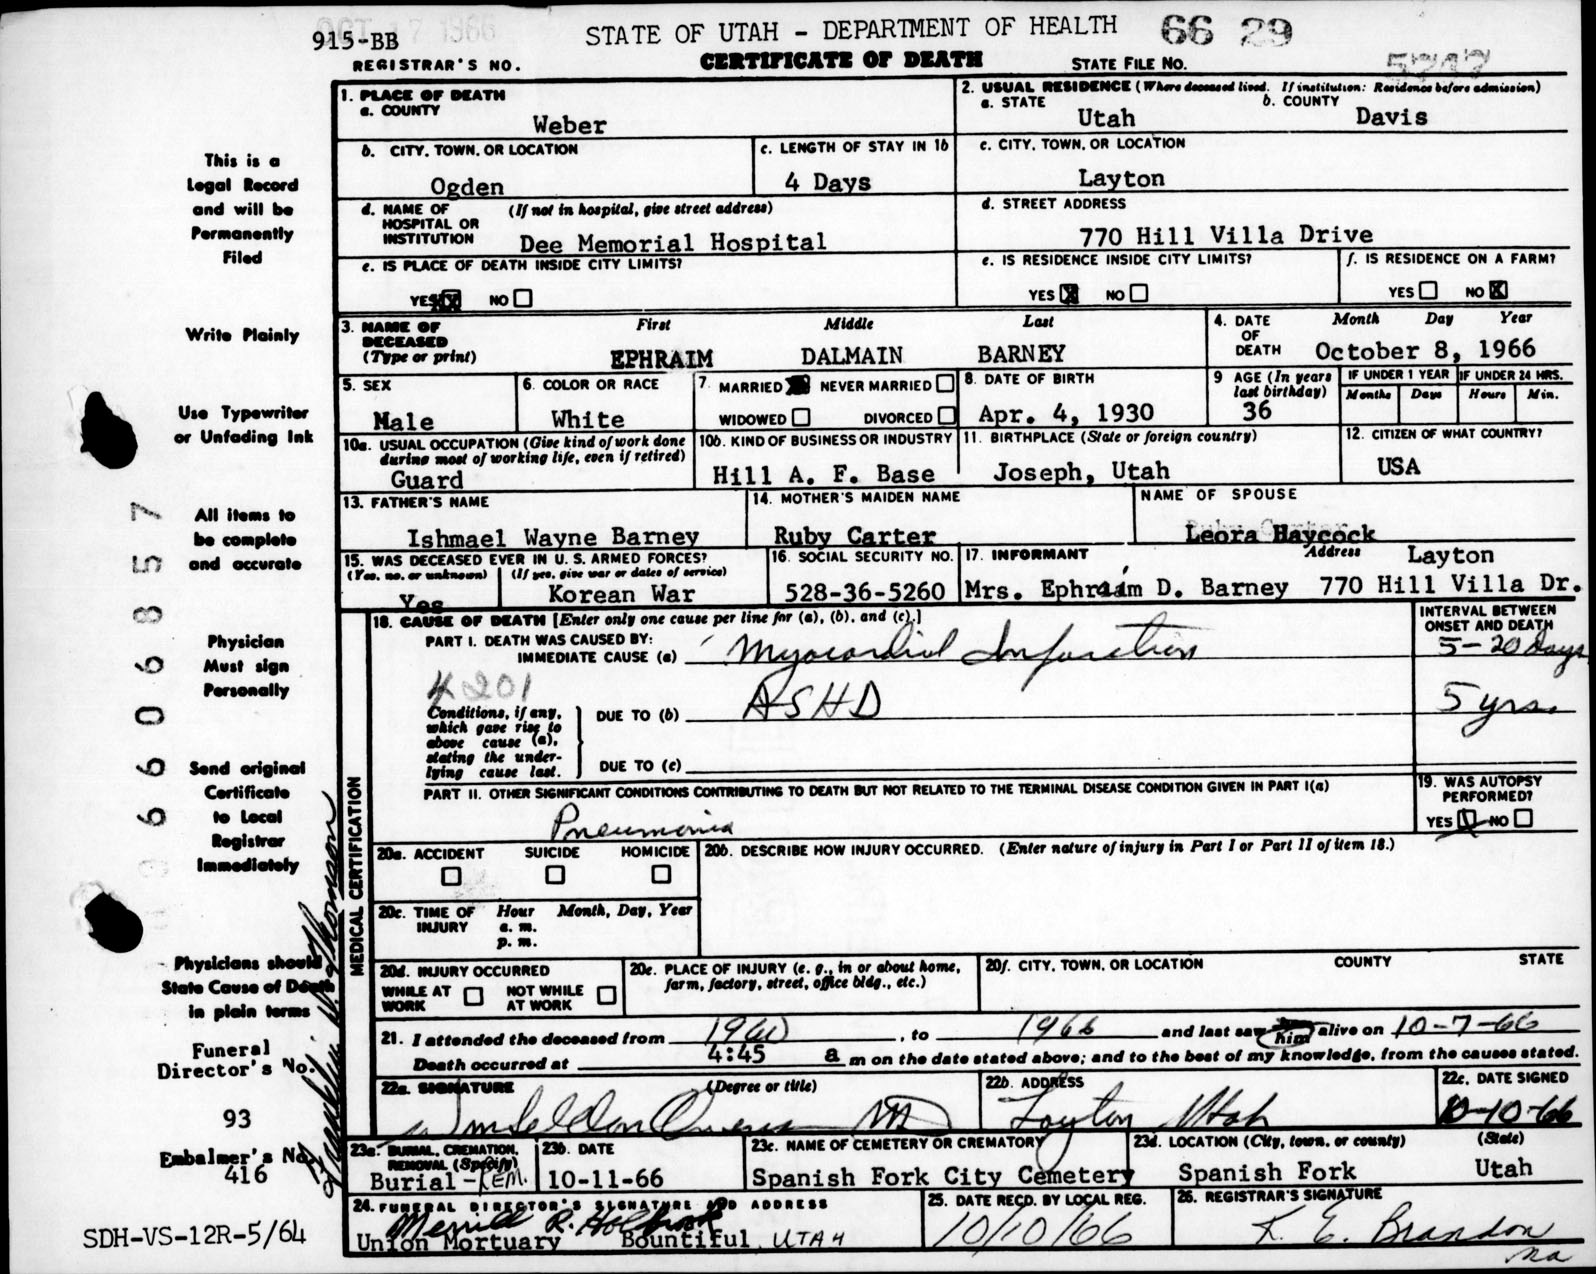 OCT 17 1966
915-BB
REGISTRAR'S NO.
STATE OF UTAH - DEPARTMENT OF HEALTH
CERTIFICATE OF DEATH
66 29
STATE FILE NO. 5747
1. PLACE OF DEATH
a. COUNTY
Weber
2. USUAL RESIDENCE (Where deceased lived. If institution: Residence before admission)
a. STATE b. COUNTY
Utah Davis
b. CITY, TOWN, OR LOCATION
Ogden
c. LENGTH OF STAY IN 1b
4 Days
c. CITY, TOWN, OR LOCATION
Layton
d. NAME OF HOSPITAL OR INSTITUTION (If not in hospital, give street address)
Dee Memorial Hospital
d. STREET ADDRESS
770 Hill Villa Drive
e. IS PLACE OF DEATH INSIDE CITY LIMITS?
YES XX NO
e. IS RESIDENCE INSIDE CITY LIMITS?
YES X NO
f. IS RESIDENCE ON A FARM?
YES NO X
3. NAME OF DECEASED (Type or print)
First Middle Last
EPHRAIM DALMAIN BARNEY
4. DATE OF DEATH
Month Day Year
October 8, 1966
5. SEX
Male
6. COLOR OR RACE
White
7. MARRIED NEVER MARRIED
WIDOWED DIVORCED
8. DATE OF BIRTH
Apr. 4, 1930
9 AGE (In years last birthday)
36
IF UNDER 1 YEAR
Months Days
IF UNDER 24 HRS.
Hours Min.
10a. USUAL OCCUPATION (Give kind of work done during most of working life, even if retired)
Guard
10b. KIND OF BUSINESS OR INDUSTRY
Hill A. F. Base
11. BIRTHPLACE (State or foreign country)
Joseph, Utah
12. CITIZEN OF WHAT COUNTRY?
USA
13. FATHER'S NAME
Ishmael Wayne Barney
14. MOTHER'S MAIDEN NAME
Ruby Carter
NAME OF SPOUSE
Leora Haycock
15. WAS DECEASED EVER IN U. S. ARMED FORCES?
(Yes, no, or unknown) (If yes, give war or dates of service)
Yes Korean War
16. SOCIAL SECURITY NO.
528-36-5260
17. INFORMANT Address Layton
Mrs. Ephraim D. Barney 770 Hill Villa Dr.
MEDICAL CERTIFICATION
18. CAUSE OF DEATH [Enter only one cause per line for (a), (b), and (c).]
PART I. DEATH WAS CAUSED BY:
IMMEDIATE CAUSE (a) Myocardial Infarction
INTERVAL BETWEEN ONSET AND DEATH
5-20 days
4201
Conditions, if any, which gave rise to above cause (a), stating the underlying cause last.
DUE TO (b) ASHD
5 yrs.
DUE TO (c)
PART II. OTHER SIGNIFICANT CONDITIONS CONTRIBUTING TO DEATH BUT NOT RELATED TO THE TERMINAL DISEASE CONDITION GIVEN IN PART I(a)
Pneumonia
19. WAS AUTOPSY PERFORMED?
YES NO
20a. ACCIDENT SUICIDE HOMICIDE
20b. DESCRIBE HOW INJURY OCCURRED. (Enter nature of injury in Part I or Part II of item 18.)
20c. TIME OF INJURY Hour Month, Day, Year
a. m.
p. m.
20d. INJURY OCCURRED
WHILE AT WORK NOT WHILE AT WORK
20e. PLACE OF INJURY (e. g., in or about home, farm, factory, street, office bldg., etc.)
20f. CITY, TOWN, OR LOCATION COUNTY STATE
21. I attended the deceased from 1960, to 1966 and last saw him alive on 10-7-66
Death occurred at 4:45 a m on the date stated above; and to the best of my knowledge, from the causes stated.
22a. SIGNATURE (Degree or title)
22b. ADDRESS
Layton Utah
22c. DATE SIGNED
10-10-66
23a. BURIAL, CREMATION, REMOVAL (Specify)
Burial-REM.
23b. DATE
10-11-66
23c. NAME OF CEMETERY OR CREMATORY
Spanish Fork City Cemetery
23d. LOCATION (City, town, or county) (State)
Spanish Fork Utah
24. FUNERAL DIRECTOR'S SIGNATURE AND ADDRESS
Merrill R. Holbrook
Union Mortuary Bountiful, UTAH
25. DATE RECD. BY LOCAL REG.
10/10/66
26. REGISTRAR'S SIGNATURE
K. E. Brandon
This is a
Legal Record
and will be
Permanently
Filed
Write Plainly
Use Typewriter
or Unfading Ink
All items to
be complete
and accurate
Physician
Must sign
Personally
Send original
Certificate
to Local
Registrar
Immediately
Physicians should
State Cause of Death
in plain terms
Funeral
Director's No.
93
Embalmer's No.
416
SDH-VS-12R-5/64